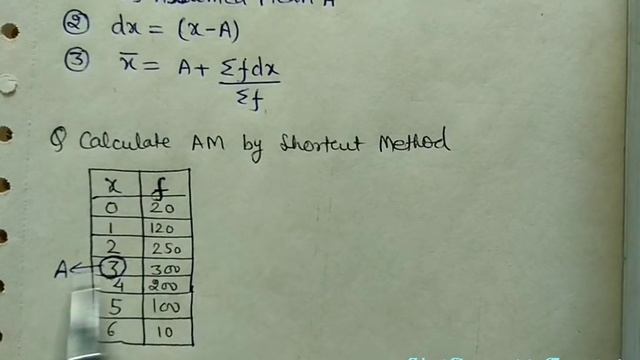 ② dx = (x-A)
③ x̄ = A + Σfdx / Σf
Q Calculate AM by Shortcut Method
x f
0 20
1 120
2 250
A ← 3 300
4 200
5 100
6 10